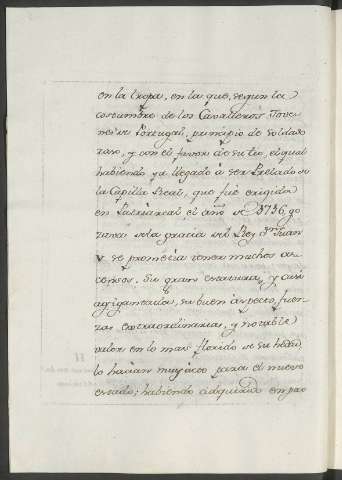 en la tropa, en la que, segun la
costumbre de los Cavalleros Jove-
nes de Portugal, principio de Soldado
raso, y con el favor de su tio, el qual
habiendo ya llegado à ser Prelado de
la Capilla Real, que fuè erigida
en Patriarcal el año de 1736, go
zava de la gracia del Rey Dn Juan
V se prometia tener muchos as-
censos. Su gran estatura, y casi
agigantado, su buen aspecto, fuer-
zas extraordinarias, y notable
valor en lo mas florido de su hedad
lo hacian muy apto para el nuevo
estado; habiendo adquirido en po